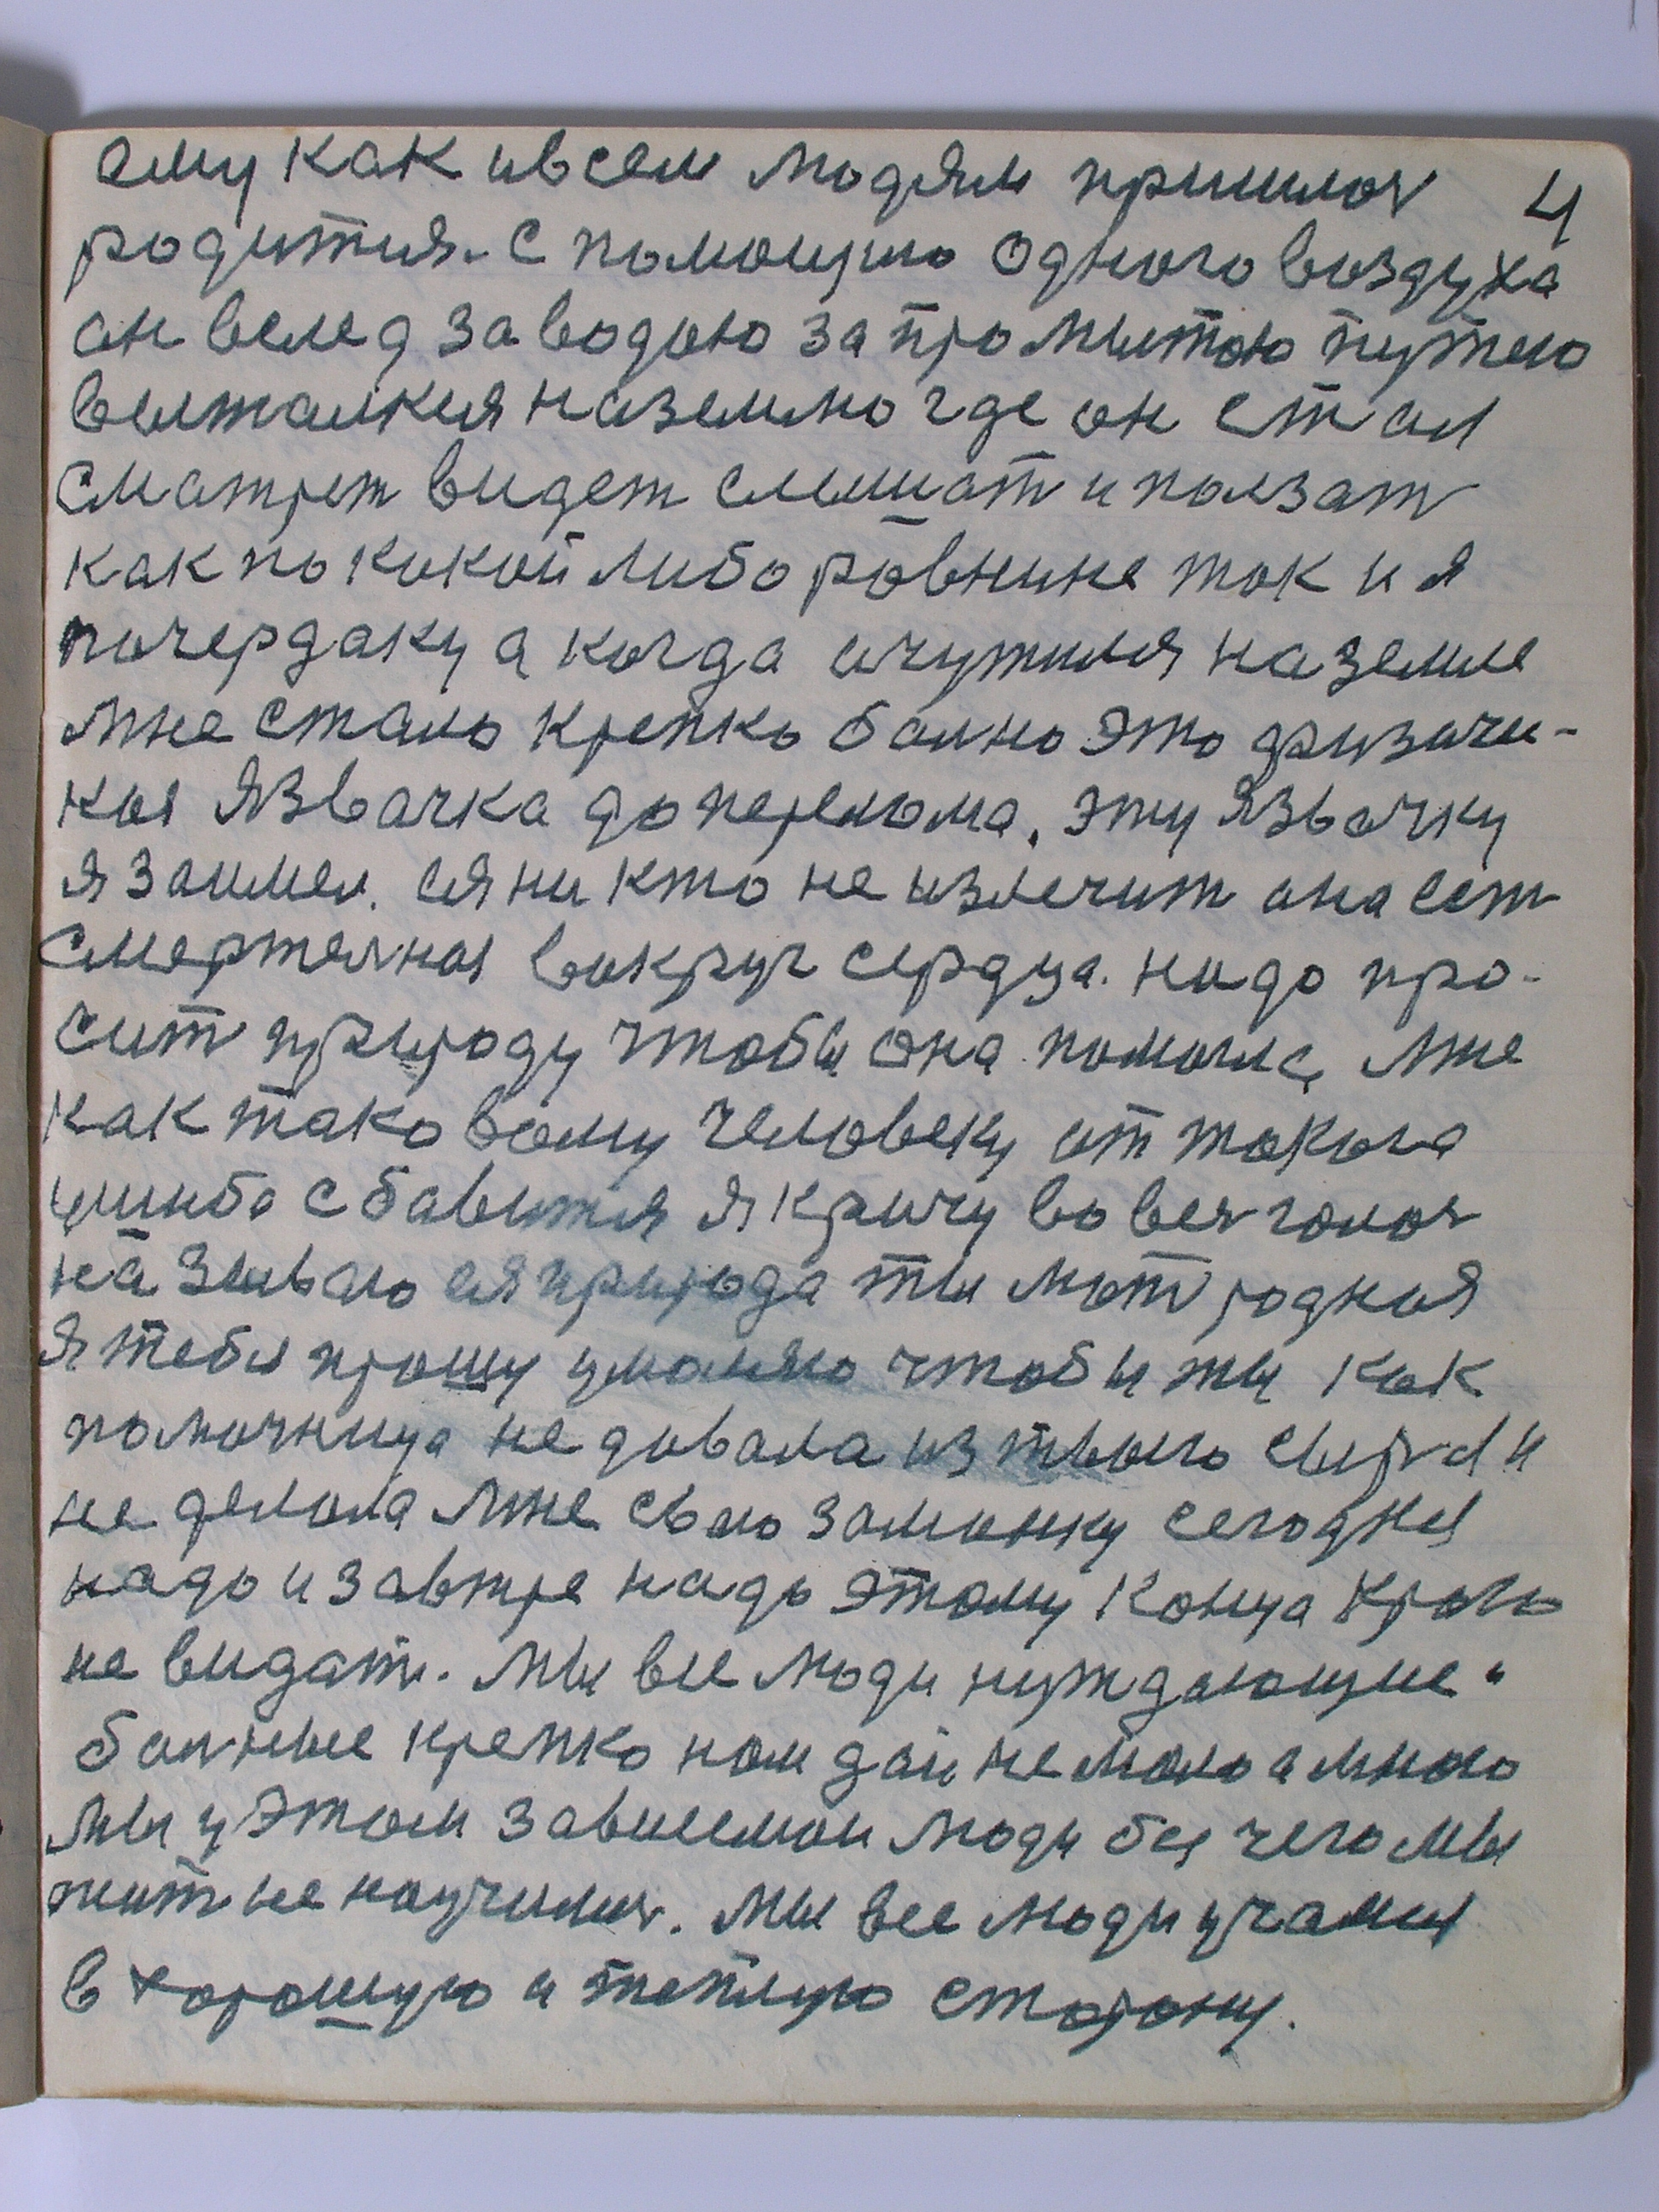 ему как ивсем людям пришлос 4
родится. С помощию одного воздуха
он вслед за водою за промытою путею
вылталкся наземлю где он стал
сматрет видет слышат и ползат
как по какой либо равнине так и я
почердаку а когда очутился на земле
мне стало крепко болно это физичи-
ная язвачка до перелома. эту язвочку
я заимел. ея ни кто не излечит она ест
смертелная вокруг сердца. надо про-
сит природу чтобы она помогла мне
как таковому человеку от такого
ушиба сбавится я кричу во вес голос
называю ея природа ты мат родная
я тебя прошу умаляю чтобы ты как
помочница не давала из твоего сыря и
не делала мне свою заманку сегодня
надо и завтре надо этому конца краю
не видат. Мы все люди нуждающие
болные крепко нам дай не мало а много
мы у этом зависемои люди без чего мы
жит не научилис. Мы все люди учамся
в хорошую и теплую сторону.